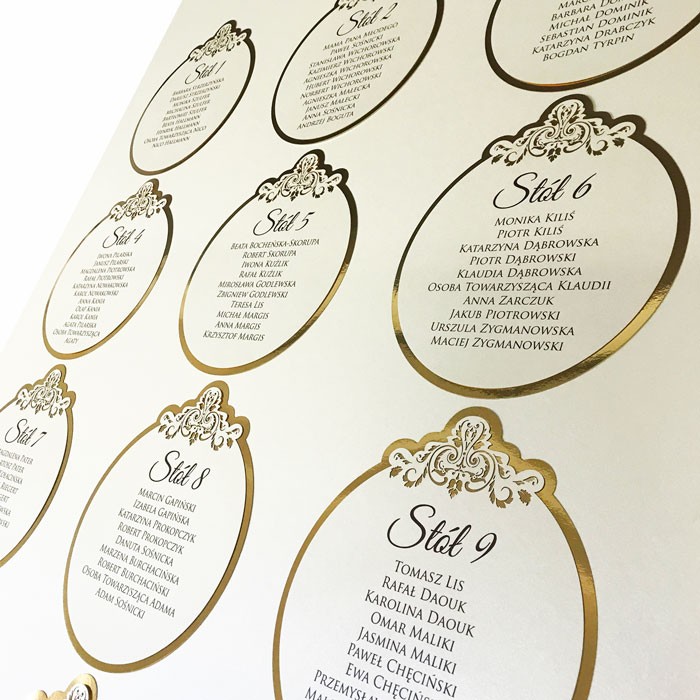 Stół 1
Barbara Strzerzyńska
Dariusz Strzerzyński
Monika Szulfer
Michalina Szulfer
Bartłomiej Szulfer
Beata Hallmann
Henryk Hallmann
Osoba Towarzysząca Nico
Nico Hallmann
Stół 2
Mama Pana Młodego
Paweł Sośnicki
Stanisława Wichorowska
Kazimierz Wichorowski
Agnieszka Wichorowska
Hubert Wichorowski
Norbert Wichorowski
Agnieszka Małecka
Janusz Małecki
Anna Sośnicka
Andrzej Boguta
Barbara Dominik
Michał Dominik
Sebastian Dominik
Katarzyna Drabczyk
Bogdan Tyrpin
Stół 4
Iwona Pilarska
Janusz Pilarski
Magdalena Piotrowska
Rafał Piotrowski
Katarzyna Nowakowska
Karol Nowakowski
Anna Kania
Olaf Kania
Karol Kania
Agata Pilarska
Osoba Towarzysząca
Agaty
Stół 5
Beata Bocheńska-Skorupa
Robert Skorupa
Iwona Kuźlik
Rafał Kuźlik
Mirosława Godlewska
Zbigniew Godlewski
Teresa Lis
Michał Margis
Anna Margis
Krzysztof Margis
Stół 6
Monika Kiliś
Piotr Kiliś
Katarzyna Dąbrowska
Piotr Dąbrowski
Klaudia Dąbrowska
Osoba Towarzysząca Klaudii
Anna Zarczuk
Jakub Piotrowski
Urszula Zygmanowska
Maciej Zygmanowski
Stół 7
Magdalena Pater
Pater
Rejgert
Stół 8
Marcin Gapiński
Izabela Gapińska
Katarzyna Prokopczyk
Robert Prokopczyk
Danuta Sośnicka
Marzena Burchacińska
Robert Burchaciński
Osoba Towarzysząca Adama
Adam Sośnicki
Stół 9
Tomasz Lis
Rafał Daouk
Karolina Daouk
Omar Maliki
Jasmina Maliki
Paweł Chęciński
Ewa Chęcińska